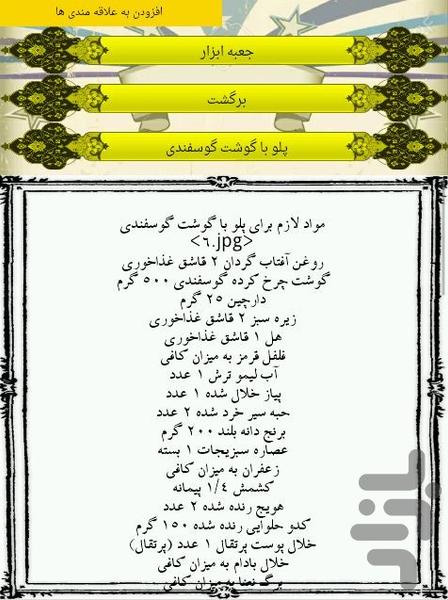 افزودن به علاقه مندی ها
جعبه ابزار
برگشت
پلو با گوشت گوسفندی
مواد لازم برای پلو با گوشت گوسفندی
<٦.jpg>
روغن آفتاب گردان ٢ قاشق غذاخوری
گوشت چرخ کرده گوسفندی ٥٠٠ گرم
دارچین ٢٥ گرم
زیره سبز ٢ قاشق غذاخوری
هل ١ قاشق غذاخوری
فلفل قرمز به میزان کافی
آب لیمو ترش ١ عدد
پیاز خلال شده ١ عدد
حبه سیر خرد شده ٢ عدد
برنج دانه بلند ٢٠٠ گرم
عصاره سبزیجات ١ بسته
زعفران به میزان کافی
کشمش ١/٤ پیمانه
هویج رنده شده ٢ عدد
کدو حلوایی رنده شده ١٥٠ گرم
خلال پوست پرتقال ١ عدد (پرتقال)
خلال بادام به میزان کافی
برگ نعنا به میزان کافی
بازار